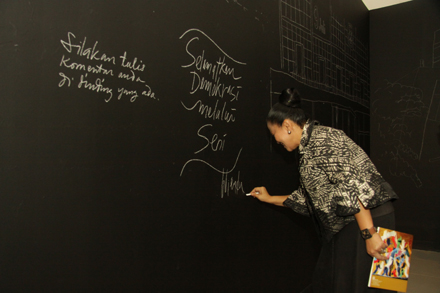 Silakan tulis
Komentar anda
di dinding yang ada.
Selamatkan
Demokrasi
melalui
Seni